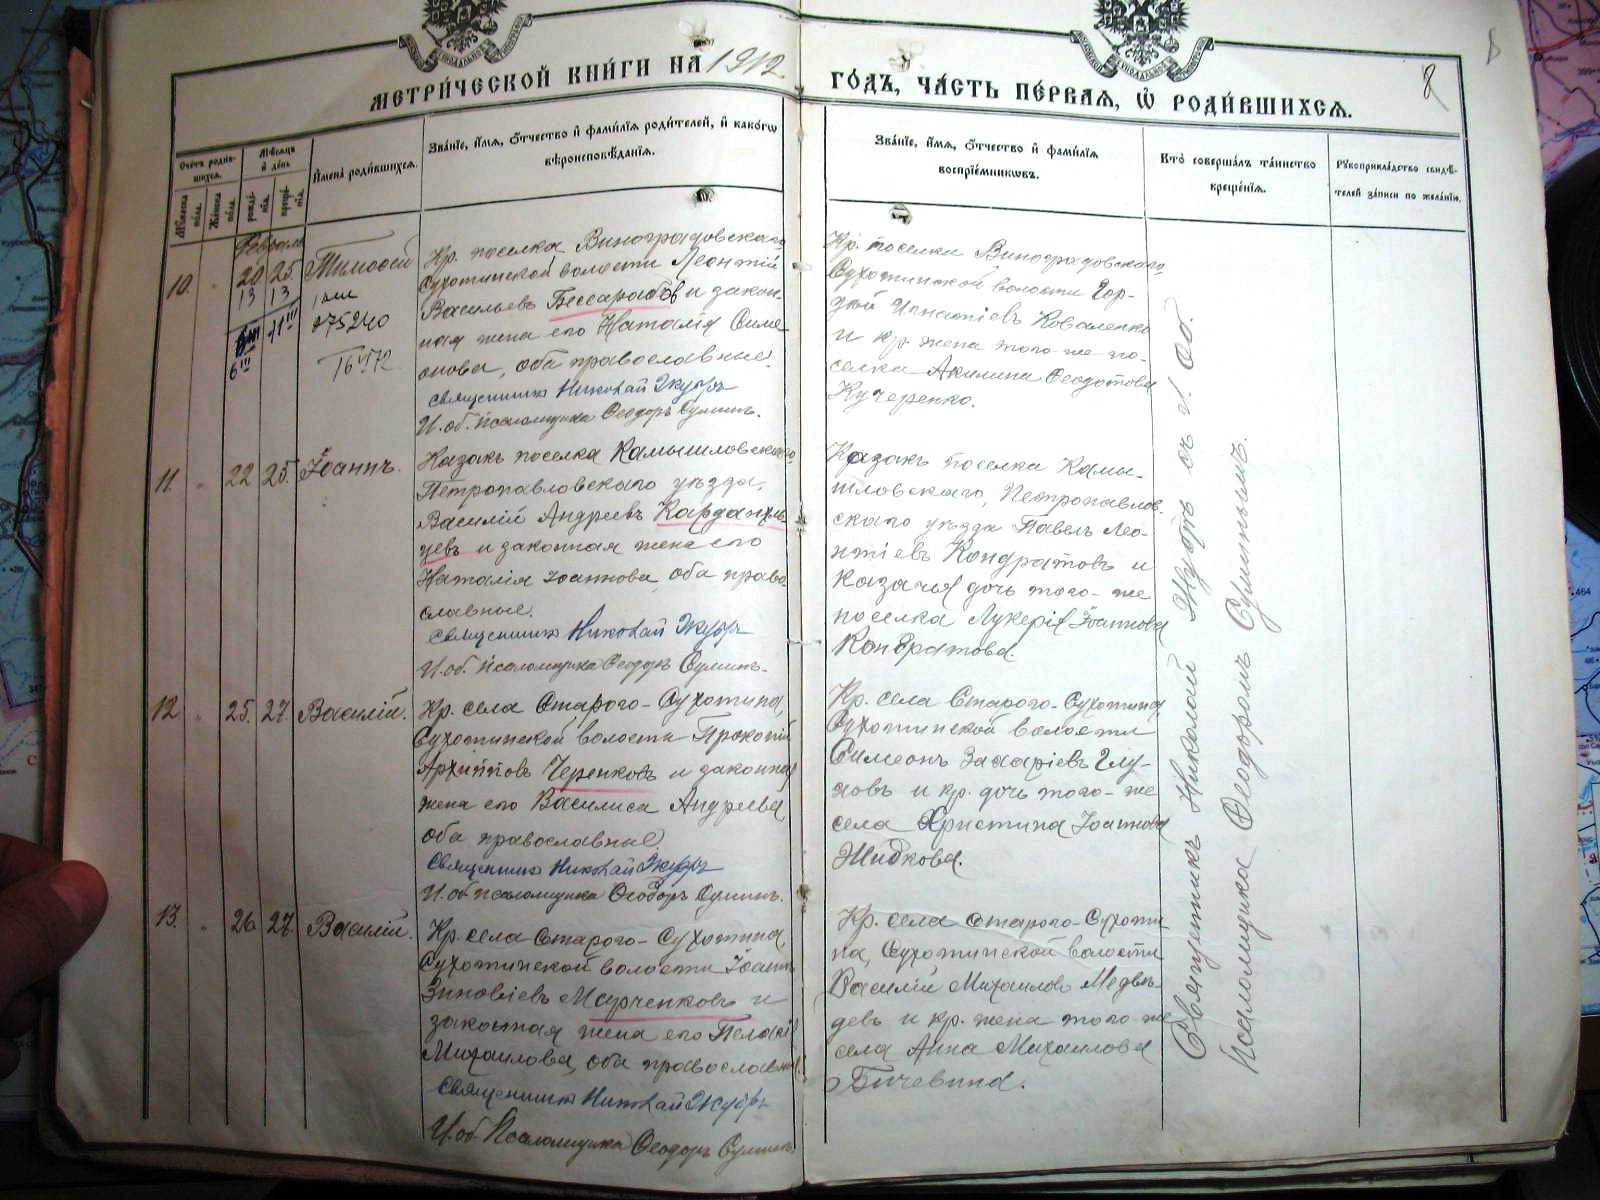 МЕТРИ́ЧЕСКОЙ КНИ́ГИ НА 1912
ГО́ДЪ, ЧА́СТЬ ПЕ́РВАЯ, Ѽ РОДИ́ВШИХСЯ.
8
Счетъ роди́вшихся.
Му́жеска по́ла.
Же́нска по́ла.
Мѣ́сяцъ и де́нь
рожде́нія.
креще́нія.
И́мена роди́вшихся.
Зва́ніе, и́мя, о́тчество и фами́лія роди́телей, и како́гѡ
вѣроисповѣ́данія.
Зва́ніе, и́мя, о́тчество и фами́лія
воспріе́мникѡвъ.
Кто́ соверша́лъ та́инство
креще́нія.
Рꙋкоприкла́дство свидѣ́-
телей за́писи по жела́нію.
Февраль
10. 20 25 Тимоѳей
13 13
275240
6 III
Кр. поселка Виноградовскаго
Сухотинской волости Леонтій
Васильевъ Бессарабовъ и закон-
ная жена его Наталія Симе-
онова, оба православные.
Священникъ Николай
И. об. Псаломщика Ѳеодоръ Суминъ.
Кр. поселка Виноградовскаго
Сухотинской волости Гор-
дѣй Игнатіевъ Коваленко
и кр. жена того-же по-
селка Акилина Ѳеодотова
Кучеренко.
11. 22 25. Іоаннъ.
Казакъ поселка Камышловскаго
Петропавловскаго уѣзда,
Василій Андреевъ Карданоль-
цевъ и законная жена его
Наталія Іоаннова, оба право
славные.
Священникъ Николай
И. об. Псаломщика Ѳеодоръ Суминъ.
Казакъ поселка Камы-
шловскаго, Петропавлов-
скаго уѣзда Павелъ Лео-
нтіевъ Кондратовъ и
казачья дочь того-же
поселка Лукерія Іоаннова
Кондратова.
12 25. 27. Василій.
Кр. села Стараго-Сухотина,
Сухотинской волости Прокопій
Архиповъ Черенковъ и законная
жена его Василиса Андреева,
оба православные.
Священникъ Николай
И. об. псаломщика Ѳеодоръ Суминъ.
Кр. села Стараго-Сухотина
Сухотинской волости
Симеонъ Захаріевъ Глу-
ховъ и кр. дочь того-же
села Христина Іоаннова
Жидкова.
13. 26 27. Василій.
Кр. села Стараго-Сухотина,
Сухотинской волости Іоаннъ
Зиновіевъ Марченковъ и
законная жена его Пелагія
Михаилова, оба православные.
Священникъ Николай
И. об. Псаломщика Ѳеодоръ Суминъ.
Кр. села Стараго-Сухоти
на, Сухотинской волости
Василій Михаиловъ Медвѣ-
девъ и кр. жена того-же
села Анна Михаилова
Бичевина.
Священникъ Николай съ и. об.
Псаломщика Ѳеодоромъ Суминымъ.